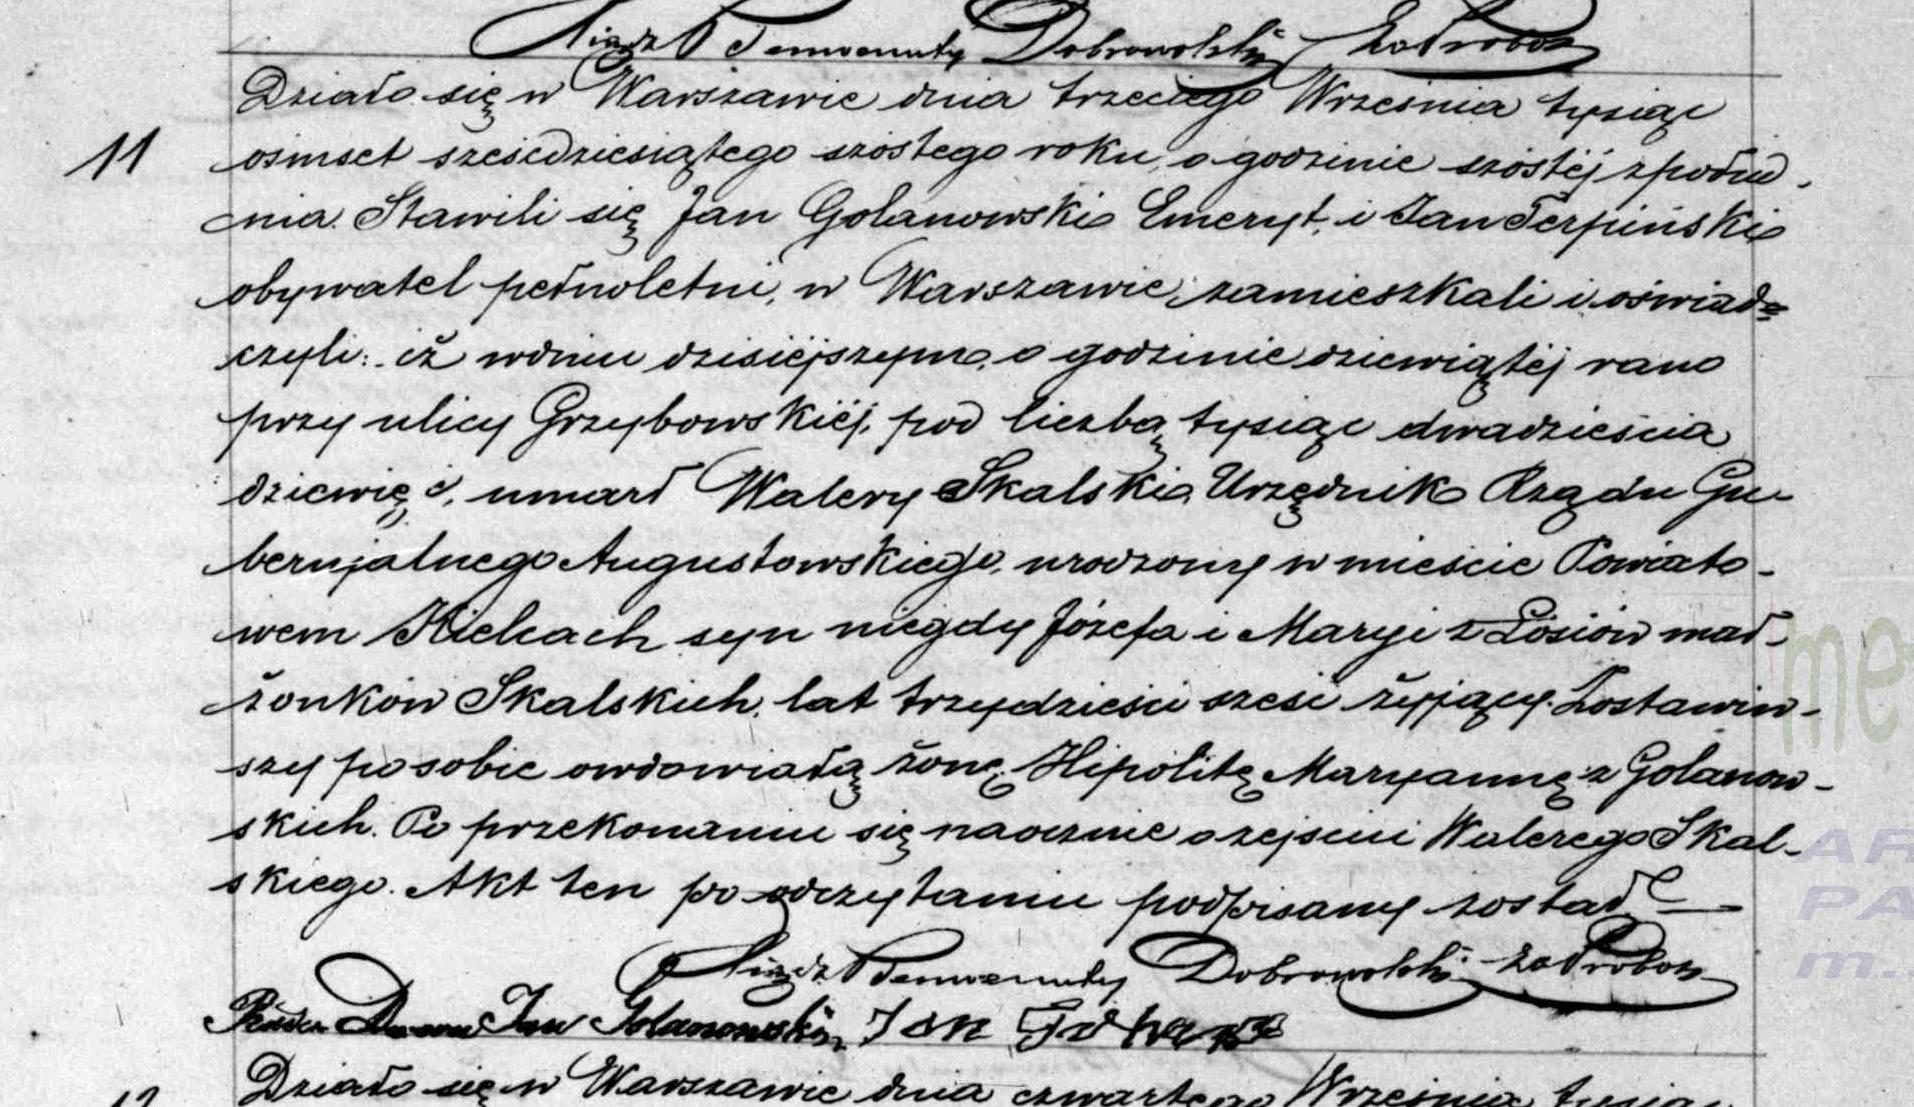 Xiądz Benwenuty Dobrowolski za Probosz
Działo się w Warszawie dnia trzeciego Września tysiąc
11
ośmset sześćdziesiątego szóstego roku, o godzinie szóstéj z połud-
nia. Stawili się Jan Golanowski Emeryt, i Jan Terpiński
obywatel pełnoletni, w Warszawie zamieszkali i oświad=
czyli: iż wdniu dzisiéjszym, o godzinie dziewiątéj rano
przy ulicy Grzybowskiéj, pod liczbą tysiąc dwadzieścia
dziewięć, umarł Walery Skalski Urzędnik Rządu Gu-
bernjalnego Augustowskiego, urodzony w mieście Powiato-
wem Kielcach syn niegdy Józefa i Maryi z Łosiów mał-
żonków Skalskich, lat trzydzieści sześć żyjący. Zostawiw-
szy po sobie owdowiałą żonę Hipolitę Maryannę z Golanow-
skich. Po przekonaniu się naocznie o zejściu Walerego Skal-
skiego. Akt ten po odczytaniu podpisany został
Xiądz Benwenuty Dobrowolski za Probosz
Jan Golanowski Jan
12
Działo się w Warszawie dnia czwartego Września tysiąc